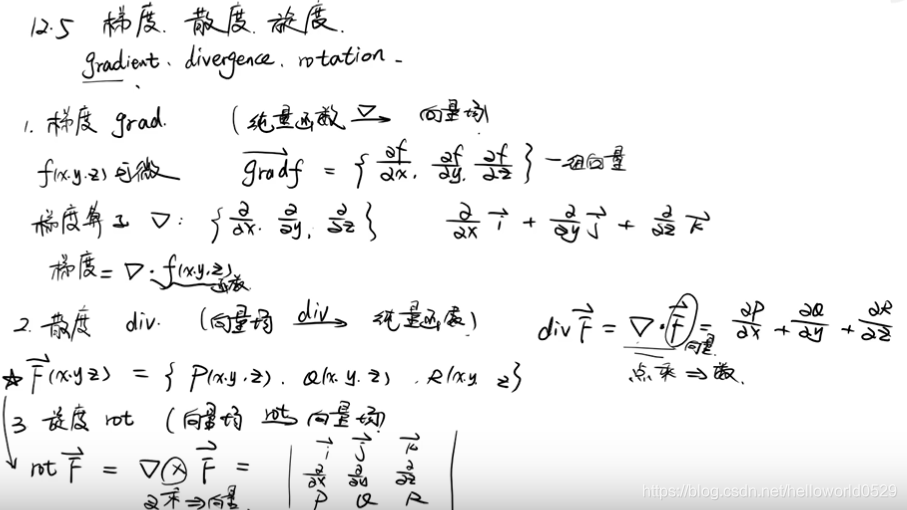 12.5 梯度. 散度. 旋度.
gradient. divergence. rotation.
1. 梯度 grad. (纯量函数 ∇→ 向量场)
f(x.y.z) 可微 grad f→ = {∂f/∂x, ∂f/∂y, ∂f/∂z} 一组向量
梯度算子 ∇: {∂/∂x, ∂/∂y, ∂/∂z} ∂/∂x i→ + ∂/∂y j→ + ∂/∂z k→
梯度 = ∇ · f(x.y.z)
函数
2. 散度 div. (向量场 div→ 纯量函数)
div F→ = ∇ · F→ = ∂P/∂x + ∂Q/∂y + ∂R/∂z
向量
点乘 ⇒ 数.
☆ F→(x.y z) = {P(x.y.z). Q(x.y.z). R(x.y z)}
3 旋度 rot (向量场 rot→ 向量场)
rot F→ = ∇ × F→ = | i→ j→ k→
∂/∂x ∂/∂y ∂/∂z
P Q R |
叉乘⇒向量
https://blog.csdn.net/helloworld0529